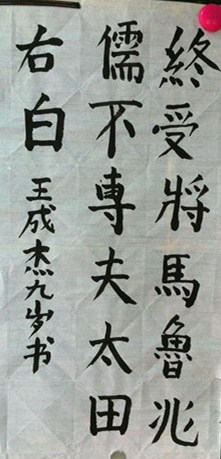 終受將馬魯兆
儒不專夫太田
右白
王成杰九岁书